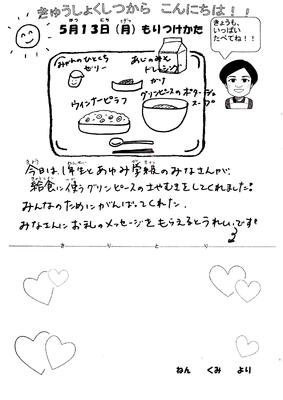 きゅうしょくしつから こんにちは！！
5月13日(月)もりつけかた
きょうも、
いっぱい
たべてね！！
みかんのひとくち
ゼリー
あじのみと
ドレッシング
かり
ウインナーピラフ
グリンピースのポタージュ
スープ
今日は、1年生とあゆみ学級のみなさんが、
給食に使うグリンピースのさやむきをしてくれました!
みんなのためにがんばってくれた、
みなさんにお礼のメッセージをもらえるとうれしいです!
きりとり
ねん くみ より